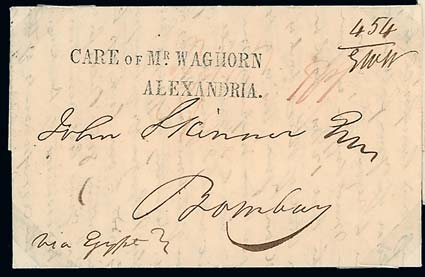 454
CARE OF MR WAGHORN
ALEXANDRIA.
John Skinner Esqr
Bombay
via Egypt